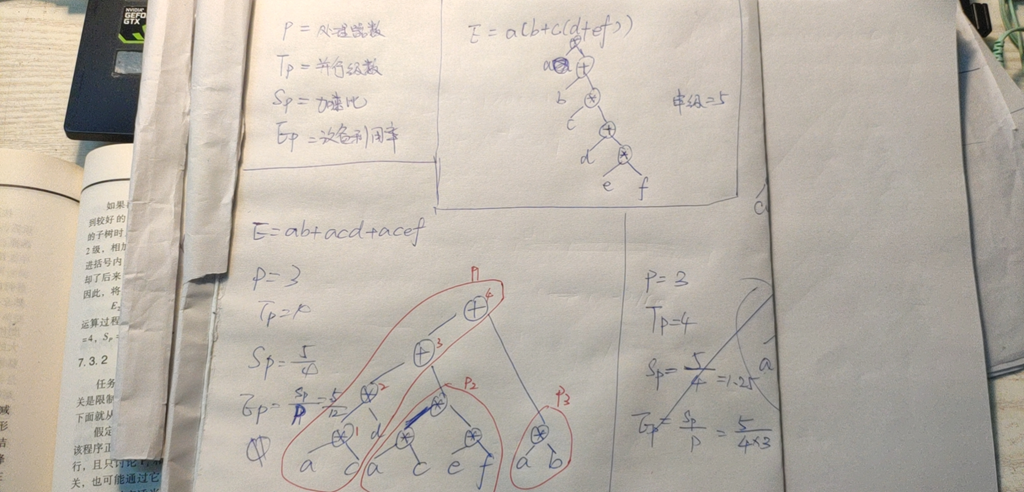 NVIDIA
GEFO
GTX
P = 处理器数
Tp = 并行级数
Sp = 加速比
Ep = 设备利用率
E = a(b+c(d+ef))
*
a +
b *
c +
d *
e f
串级=5
E=ab+acd+acef
P=3
Sp=5/4
Ep=Sp/P=5/12
P1
+ 4
+ 3
* 2
* P2
* 1
d
* *
P3
*
a c a c e f a b
P=3
Tp=4
Sp=5/4=1.25
Ep=Sp/P=5/4×3
a
如果
到较好的
的子树时
2级,相加
进括号内
却了后来
因此,将
运算过程
=4,
7.3.2
任务
关是限制
下面就从
假定
该程序正
行,且只讨论
关,也可能通过它